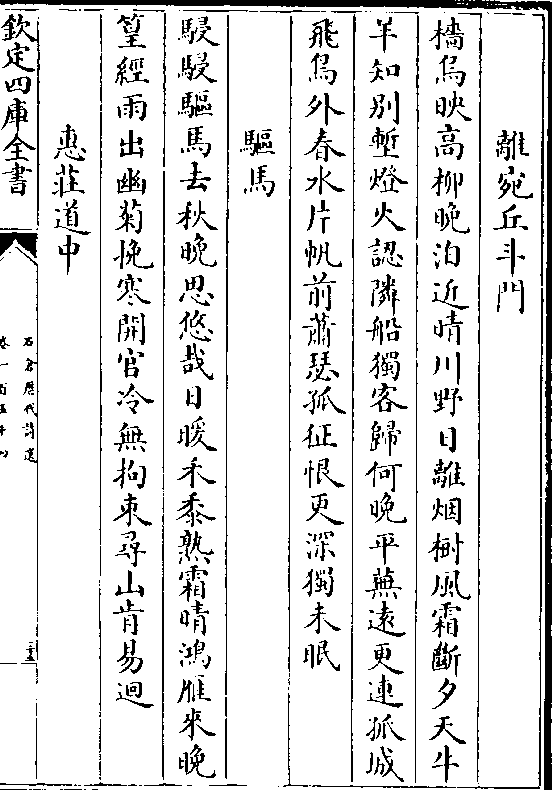 離宛丘斗門
檣烏映高柳晚泊近晴川野日離烟樹風霜斷夕天牛
羊知別塹燈火認隣船獨客歸何晚平蕪遠更連孤城
飛鳥外春水片帆前蕭瑟孤征恨更深獨未眠
驅馬
駸駸驅馬去秋晚思悠哉日暖禾黍熟霜晴鴻雁來晚
篁經雨出幽菊挽寒開官冷無拘束尋山肯易迴
惠莊道中
欽定四庫全書
石倉歷代詩選
卷一百五十四